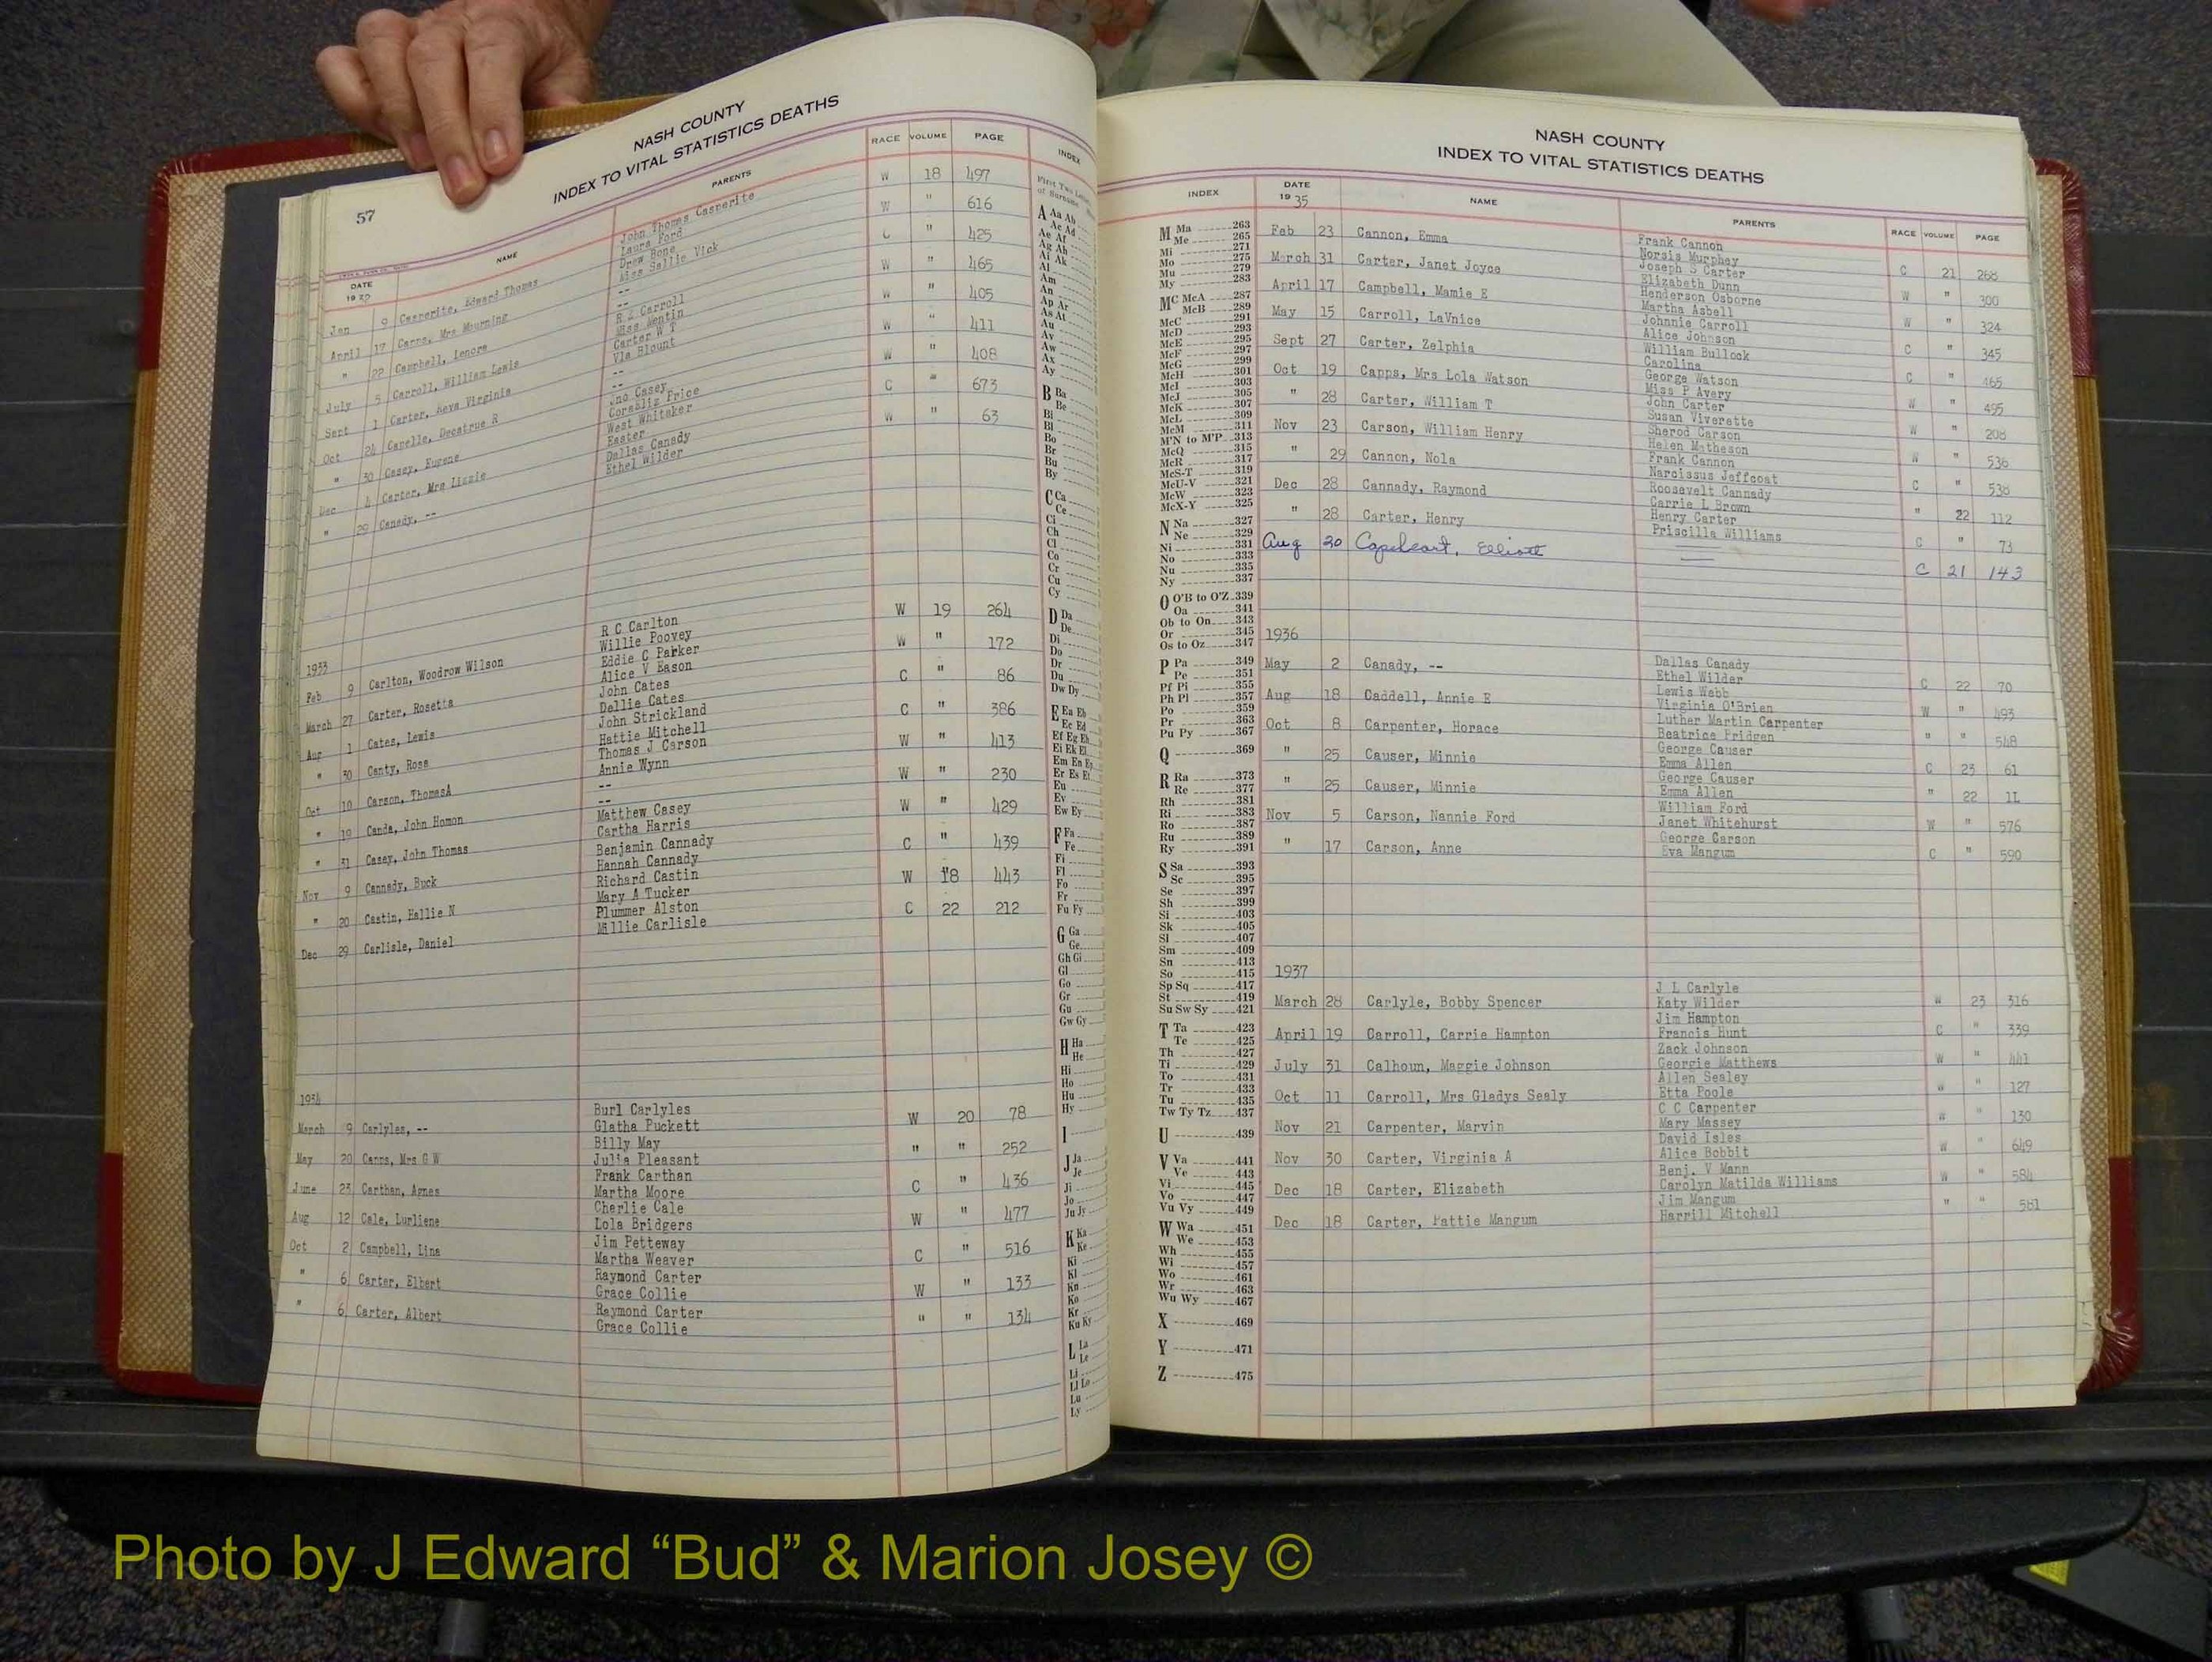 57
NASH COUNTY
INDEX TO VITAL STATISTICS DEATHS
DATE NAME PARENTS RACE VOLUME PAGE
Jan 9 Casperite, Edward Thomas John Thomas Casperite W 18 497
Laura Ford
April 17 Capps, Mrs Mourning Drew Bone W " 616
Miss Sallie Vick
" 22 Campbell, Lenora -- C " 425
--
July 5 Carroll, William Lewis R L Carroll W " 465
Sept 1 Carter, Reva Virginia Carter W T W " 405
Via Blount
Oct 24 -- W " 411
--
" 30 Casey, Eugene Jno Casey W " 408
Price
Dec 4 Carter, Mrs Lizzie West Whitaker C " 673
Easter
" 29 Canady, -- Dallas Canady W " 63
Ethel Wilder
1933
Feb 9 Carlton, Woodrow Wilson R C Carlton W 19 264
Willie Poovey
March 27 Carter, Rosetta Eddie C Parker W " 172
Alice V Eason
Aug 1 Cates, Lewis John Cates C " 86
Dellie Cates
" 30 Canty, Rosa John Strickland C " 386
Hattie Mitchell
Oct 10 Carson, ThomasA Thomas J Carson W " 413
Annie Wynn
" 19 Canda, John Homon -- W " 230
--
" 31 Casey, John Thomas Matthew Casey W " 429
Cartha Harris
Nov 9 Cannady, Buck Benjamin Cannady C " 439
Hannah Cannady
" 20 Castin, Hallie N Richard Castin W 18 443
Mary A Tucker
Dec 29 Carlisle, Daniel Plummer Alston C 22 212
Millie Carlisle
1934
March 9 Carlyles, -- Burl Carlyles W 20 78
Glatha Puckett
May 20 Capps, Mrs G W Billy May " " 252
Julia Pleasant
June 23 Carthan, Agnes Frank Carthan C " 436
Martha Moore
Aug 12 Cale, Lurliene Cherlie Cale W " 477
Lola Bridgers
Oct 2 Campbell, Lina Jim Petteway C " 516
Martha Weaver
" 6 Carter, Elbert Raymond Carter W " 133
Grace Collie
" 6 Carter, Albert Raymond Carter " " 134
Grace Collie
INDEX
First Two
of Surname
A Aa Ab
Ac Ad
Ae Af
Ag Ah
Ai Ak
Al
Am
An
Ap Ar
As At
Au
Av
Aw
Ax
Ay
B Ba
Be
Bi
Bl
Bo
Br
Bu
By
C Ca
Ce
Ci
Ch
Cl
Co
Cr
Cu
Cy
D Da
De
Di
Do
Dr
Du
Dw Dy
E Ea Eb
Ec Ed
Ef Eg Eh
Ei Ek El
Em En Ep
Er Es Et
Eu
Ev
Ew Ey
F Fa
Fe
Fi
Fl
Fo
Fr
Fu Fy
G Ga
Ge
Gh Gi
Gl
Go
Gr
Gu
Gw Gy
H Ha
He
Hi
Ho
Hu
Hy
I
J Ja
Je
Ji
Jo
Ju Jy
K Ka
Ke
Ki
Kl
Kn
Ko
Kr
Ku Ky
L La
Le
Li
Ll Lo
Lu
Ly
NASH COUNTY
INDEX TO VITAL STATISTICS DEATHS
INDEX
M Ma 263
Me 265
Mi 271
Mo 275
Mu 279
My 283
MC McA 287
McB 289
McC 291
McD 293
McE 295
McF 297
McG 299
McH 301
McI 303
McJ 305
McK 307
McL 309
McM 311
M'N to M'P 313
McQ 315
McR 317
McS-T 319
McU-V 321
McW 323
McX-Y 325
N Na 327
Ne 329
Ni 331
No 333
Nu 335
Ny 337
O O'B to O'Z 339
Oa 341
Ob to On 343
Or 345
Os to Oz 347
P Pa 349
Pe 351
Pf Pi 355
Ph Pl 357
Po 359
Pr 363
Pu Py 367
Q 369
R Ra 373
Re 377
Rh 381
Ri 383
Ro 387
Ru 389
Ry 391
S Sa 393
Sc 395
Se 397
Sh 399
Si 403
Sk 405
Sl 407
Sm 409
Sn 413
So 415
Sp Sq 417
St 419
Su Sw Sy 421
T Ta 423
Te 425
Th 427
Ti 429
To 431
Tr 433
Tu 435
Tw Ty Tz 437
U 439
V Va 441
Ve 443
Vi 445
Vo 447
Vu Vy 449
W Wa 451
We 453
Wh 455
Wi 457
Wo 461
Wr 463
Wu Wy 467
X 469
Y 471
Z 475
DATE 1935 NAME PARENTS RACE VOLUME PAGE
Feb 23 Cannon, Emma Frank Cannon C 21 268
Norsis Murphey
March 31 Carter, Janet Joyce Joseph S Carter W " 300
Elizabeth Dunn
April 17 Campbell, Mamie E Henderson Osborne W " 324
Martha Asbell
May 15 Carroll, LaVnice Johnnie Carroll C " 345
Alice Johnson
Sept 27 Carter, Zelphia William Bullock C " 465
Carolina
Oct 19 Capps, Mrs Lola Watson George Watson W " 495
Miss P Avery
" 28 Carter, William T John Carter W " 208
Susan Viverette
Nov 23 Carson, William Henry Sherod Carson W " 536
Helen Matheson
" 29 Cannon, Nola Frank Cannon C " 538
Narcissus Jeffcoat
Dec 28 Cannady, Raymond Roosevelt Cannady " 22 112
Carrie L Brown
" 28 Carter, Henry Henry Carter C " 73
Priscilla Williams
Aug 20 Capeheart, Elliott C 21 143
1936
May 2 Canady, -- Dallas Canady C 22 70
Ethel Wilder
Aug 18 Caddell, Annie E Lewis Webb W " 493
Virginia O'Brien
Oct 8 Carpenter, Horace Luther Martin Carpenter " " 548
Beatrice Pridgen
" 25 Causer, Minnie George Causer C 23 61
Emma Allen
" 25 Causer, Minnie George Causer " 22 1L
Emma Allen
Nov 5 Carson, Nannie Ford William Ford W " 576
Janet Whitehurst
" 17 Carson, Anne George Carson C " 590
Eva Mangum
1937
March 28 Carlyle, Bobby Spencer J L Carlyle W 23 316
Katy Wilder
April 19 Carroll, Carrie Hampton Jim Hampton C " 339
Francis Hunt
July 31 Calhoun, Maggie Johnson Zack Johnson W " 441
Georgie Matthews
Oct 11 Carroll, Mrs Gladys Sealy Allen Sealey " 127
Etta Poole
Nov 21 Carpenter, Marvin C C Carpenter " 130
Mary Massey
Nov 30 Carter, Virginia A David Isles W " 649
Alice Bobbit
Dec 18 Carter, Elizabeth Benj. V Mann W " 584
Carolyn Matilda Williams
Dec 18 Carter, Pattie Mangum Jim Mangum " " 581
Harrill Mitchell
Photo by J Edward “Bud” & Marion Josey ©